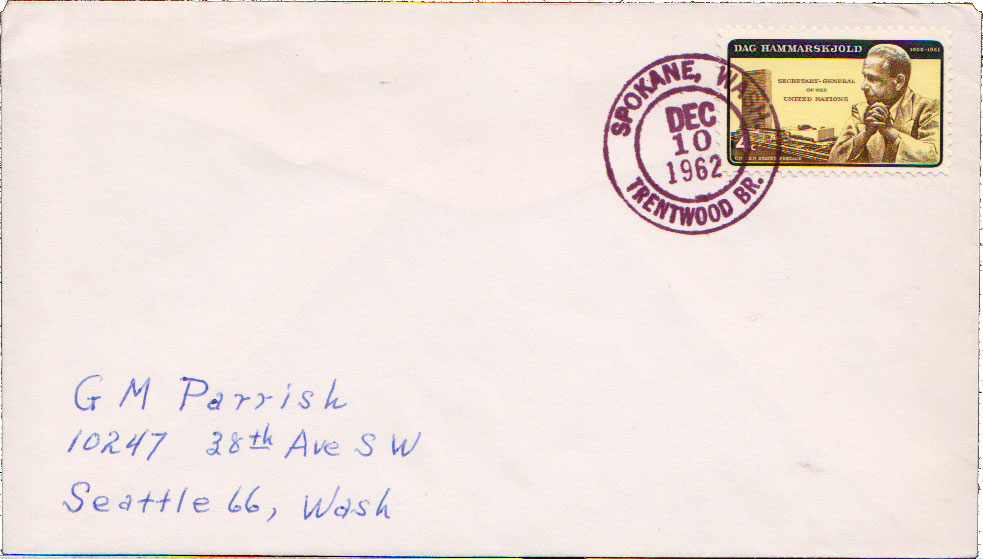 DAG HAMMARSKJOLD 1905-1961
SECRETARY-GENERAL
OF THE
UNITED NATIONS
4c
UNITED STATES POSTAGE
SPOKANE, WASH.
DEC
10
1962
TRENTWOOD BR.
G M Parrish
10247 38th Ave S W
Seattle 66, Wash